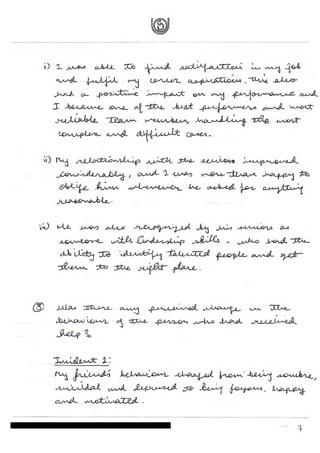 5
i) I was able to find satisfaction in my job
and fulfil my career aspirations. This also
had a positive impact on my performance and
I became one of the best performers and most
reliable team members, handling the most
complex and difficult cases.
ii) My relationship with the seniors improved
considerably, and I was more than happy to
oblige him whenever he asked for anything
reasonable.
iii) He was also recognized by his seniors as
someone with leadership skills - who had the
ability to identify talented people and get
them to the right place.
5 Was there any perceived change in the
behaviour of the person who had received
help?
Incident 1:
My friend's behaviour changed from being sombre,
suicidal and depressed to being joyous, happy
and motivated.
7